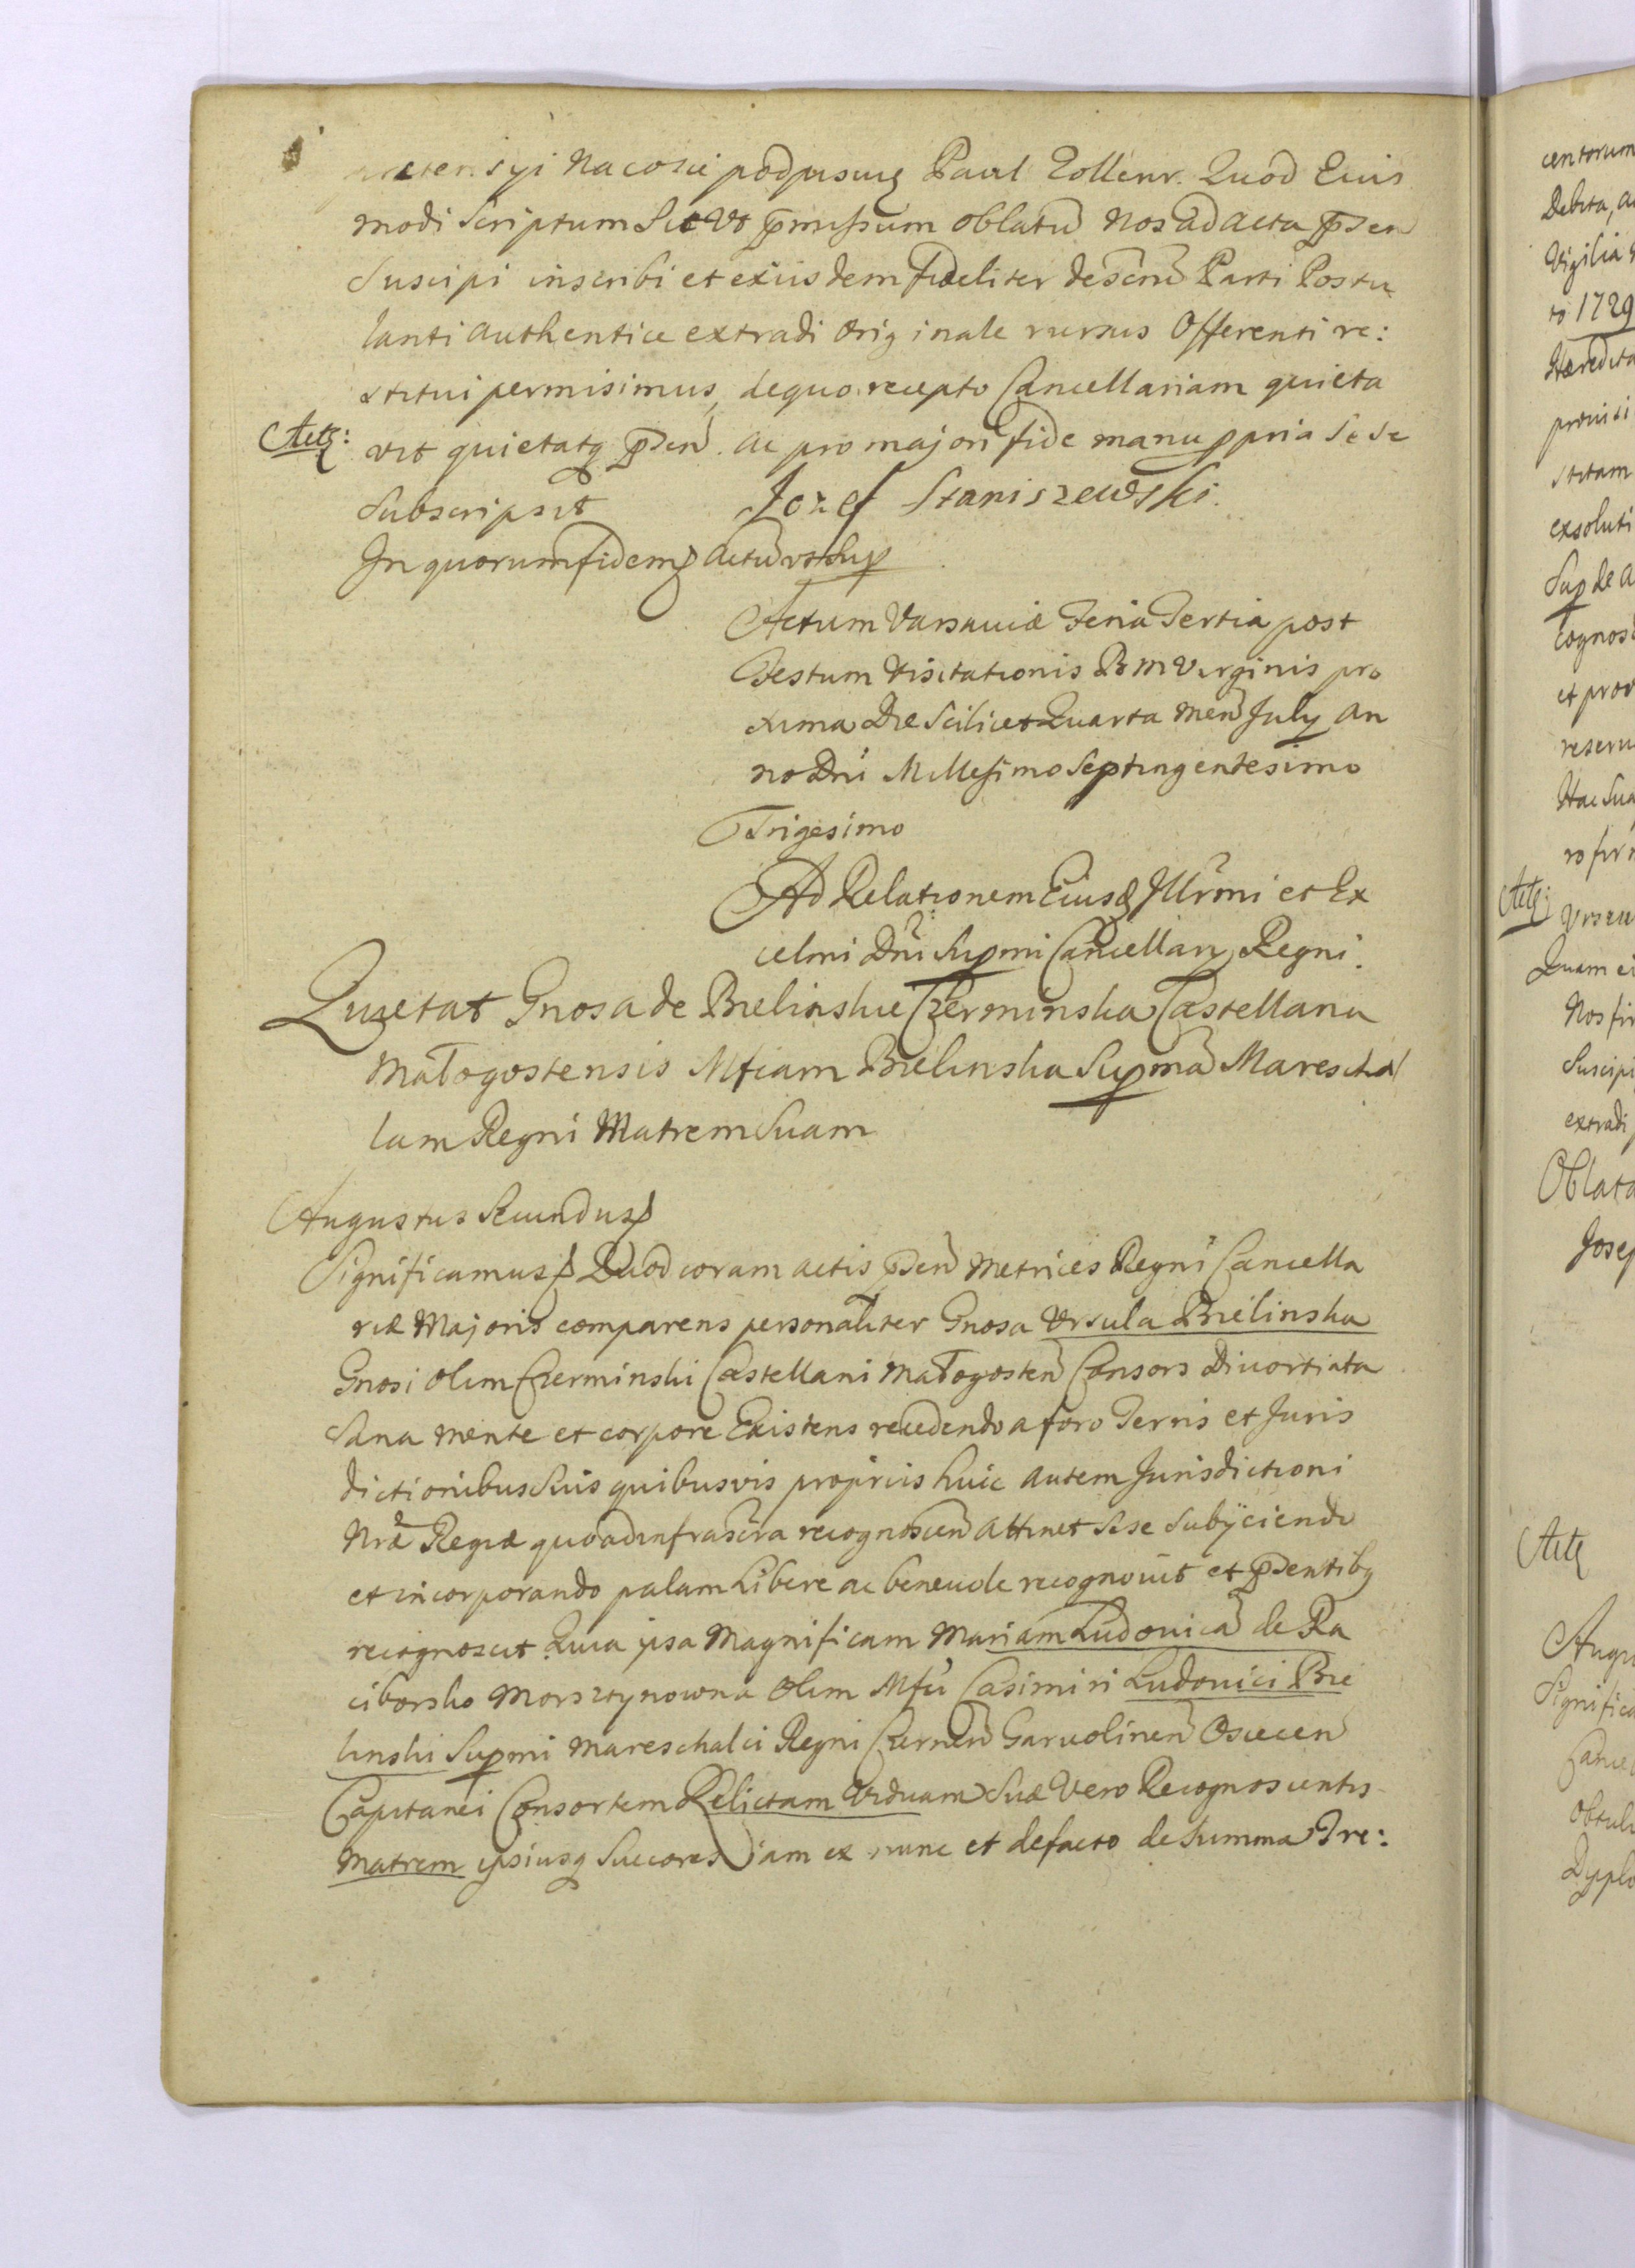 pretensyi na co się podpisuię Paul Zollenr. Quod Eius
modi Scriptum Sic Vt pmissum oblatũ Nos ad acta pñtn
Suscipi inscribi et ex iisdem fideliter descriñ Parti Postu
lanti authentice extradi originale rursus Offerenti re:
stitui permisimus, de quo recepto Cancellariam quieta
vit quietatq pñtn. ac pro majori fide manu ppria Se se
Subscripsit Jozef Staniszewski.
In quorum fidem Actũ vt Sup
Actum Varsaviæ Feria Tertia post
Festum Visitationis B M Virginis pro
xima Die Scilicet Quarta Menẽ July An
no Dni Millesimo Septingentesimo
Trigesimo
Ad Relationem Eiusd Illrmi et Ex
celmi Dni Supmi Cancellarii Regni.
Quietat Gnosa de Bielinskie Czerminska Castellana
Małogostensis Mfcam Bielinska Supmã Mareschal
lam Regni Matrem Suam
Augustus Secundus
Significamus Quod coram actis pñtn Metrices Regni Cancella
riæ Majoris comparens personaliter Gnosa Vrsula Bielinska
Gnosi olim Czerminski Castellani Małogosteñ Consors Divortiata
Sana mente et corpore Existens recedendo a foro Terris et Juris
dictionibus Suis quibusvis propriis huic autem Jurisdictioni
Nræ Regiæ quoad infrascra recognosceñ attinet Sese Subÿciendo
et incorporando palam Libere ac benevole recognovit et pñtentibq
recognoscit Quia ipsa Magnificam Mariam Ludovicã de Ra
ciborsko Morsztynowna Olim Mfci Casimiri Ludovici Bie
linski Supmi Mareschalci Regni Czerneñ Garvolineñ Osieceñ
Capitanei Consortem Relictam Viduam Suæ Vero Recognoscentis
Matrem ipsiusq Succores jam ex nunc et de facto de Summa Tre:
Actq:
centorum
Debita, a
Vigilia
to 1729
Hæredita
provisi
stitam
exsoluti
Sup de a
cognos
et prov
reserv
Hac Sua
Actq:
Quam ei
Nos fi
Suscipi
extradi
Oblata
Josep
Actq
Augu
Significa
Cancel
Obtul
Dyplo